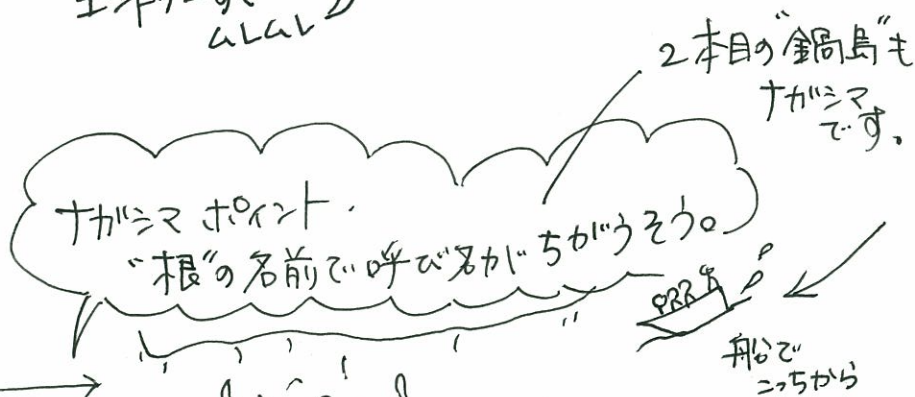 エントリーすぐ
ムレムレ
2本目の"鍋島"も
ナガシマ
です。
ナガシマ ポイント.
"根"の名前で呼び名がちがうそう。
船で
こっちから